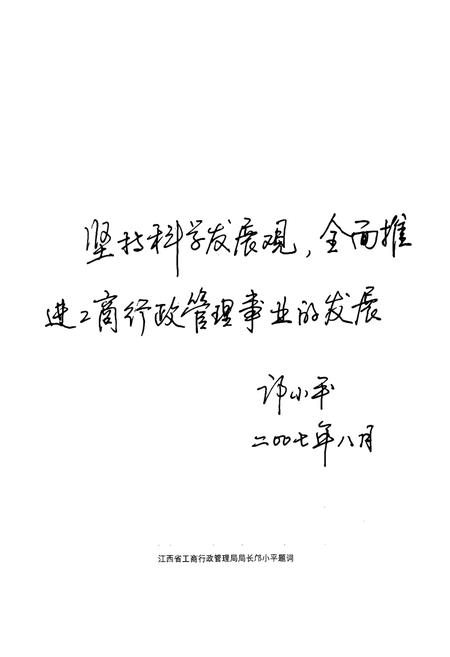 坚持科学发展观，全面推
进工商行政管理事业的发展
邝小平
二〇〇七年八月
江西省工商行政管理局局长邝小平题词